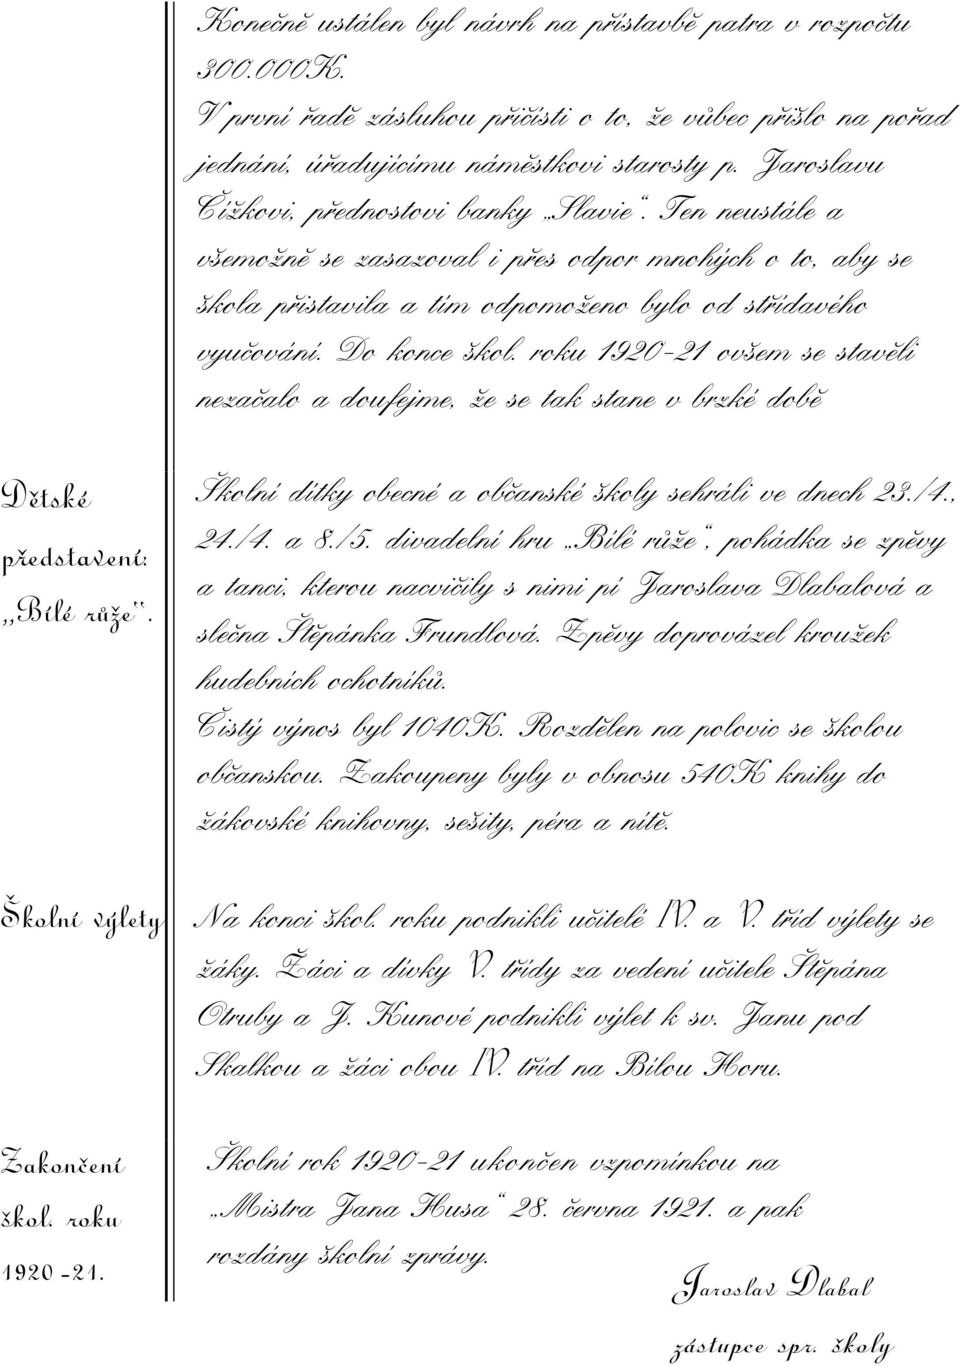 Konečně ustálen byl návrh na přístavbě patra v rozpočtu
300.000K.
V první řadě zásluhou přičísti o to, že vůbec přišlo na pořad
jednání, úřadujícímu náměstkovi starosty p. Jaroslavu
Čížkovi, přednostovi banky „Slavie“. Ten neustále a
všemožně se zasazoval i přes odpor mnohých o to, aby se
škola přistavila a tím odpomoženo bylo od střídavého
vyučování. Do konce škol. roku 1920-21 ovšem se stavěli
nezačalo a doufejme, že se tak stane v brzké době
Dětské
představení:
„Bílé růže“.
Školní dítky obecné a občanské školy sehráli ve dnech 23./4.,
24./4. a 8./5. divadelní hru „Bílé růže“, pohádka se zpěvy
a tanci, kterou nacvičily s nimi pí Jaroslava Dlabalová a
slečna Štěpánka Frundlová. Zpěvy doprovázel kroužek
hudebních ochotníků.
Čistý výnos byl 1040K. Rozdělen na polovic se školou
občanskou. Zakoupeny byly v obnosu 540K knihy do
žákovské knihovny, sešity, péra a nítě.
Školní výlety
Na konci škol. roku podnikli učitelé IV. a V. tříd výlety se
žáky. Žáci a dívky V. třídy za vedení učitele Štěpána
Otruby a J. Kunové podnikli výlet k sv. Janu pod
Skalkou a žáci obou IV. tříd na Bílou Horu.
Zakončení
škol. roku
1920 -21.
Školní rok 1920-21 ukončen vzpomínkou na
„Mistra Jana Husa“ 28. června 1921. a pak
rozdány školní zprávy.
Jaroslav Dlabal
zástupce spr. školy